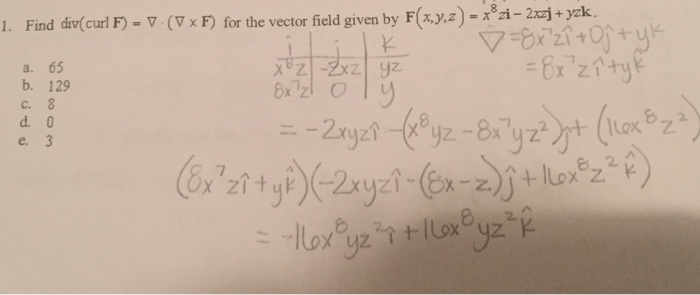 1. Find div(curl F) = ∇ · (∇ × F) for the vector field given by F(x,y,z) = x⁸zi − 2xzj + yzk.
a. 65
b. 129
c. 8
d. 0
e. 3
i | j | k
x⁸z | -2xz | yz
8x⁷z | 0 | y
∇ = 8x⁷zî + 0ĵ + yk̂
= 8x⁷zî + yk̂
= -2xyzî - (x⁸yz - 8x⁷yz²)ĵ + (16x⁸z²)
(8x⁷zî + yk̂)(-2xyzî - (8x - z)ĵ + 16x⁸z²k̂)
= -16x⁸yz²î + 16x⁸yz²k̂